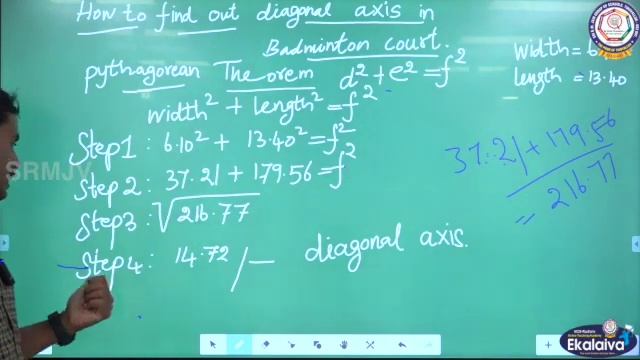 How to find out diagonal axis in
Badminton court.
pythagorean The orem d² + e² = f²
width² + length² = f²
Width = 6
length = 13.40
Step1 : 6.10² + 13.40² = f²
Step 2 : 37.21 + 179.56 = f²
Step3 : √216.77
Step4 : 14.72 /— diagonal axis.
37.21 + 179.56
= 216.77
SRMJV
Ekalaiva